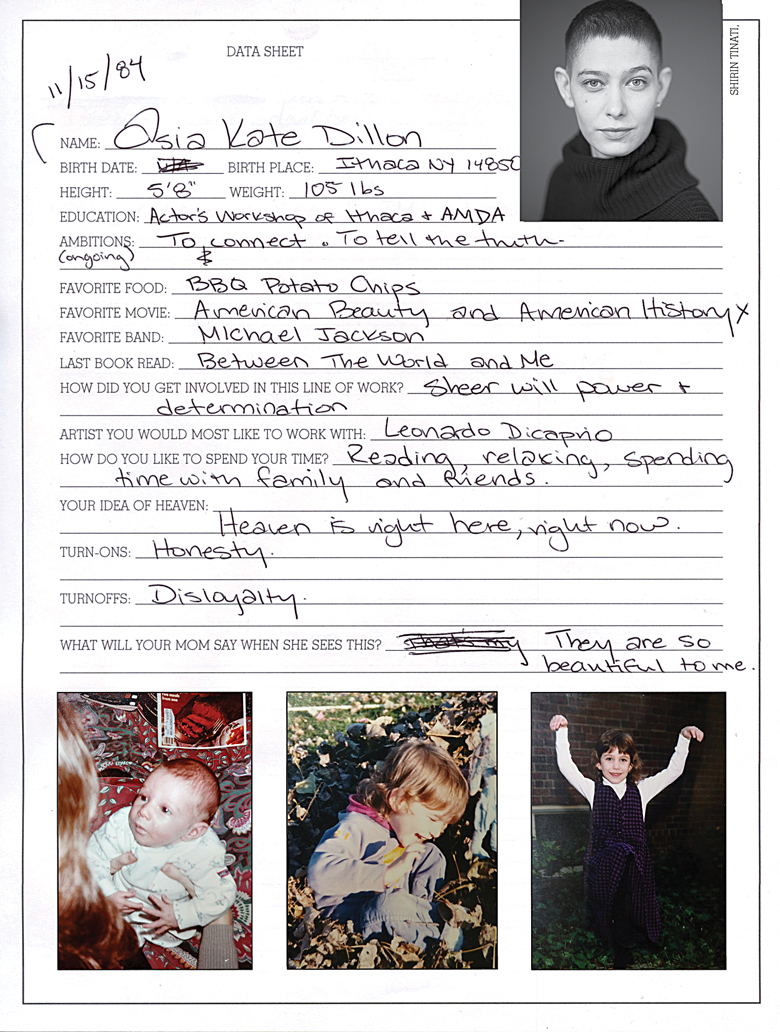 DATA SHEET
SHIRIN TINATI,
11/15/84
NAME: Asia Kate Dillon
BIRTH DATE: BIRTH PLACE: Ithaca NY 14850
HEIGHT: 5'8" WEIGHT: 105 lbs
EDUCATION: Actor's Workshop of Ithaca + AMDA
AMBITIONS: To connect. To tell the truth.
(ongoing) &
FAVORITE FOOD: BBQ Potato Chips
FAVORITE MOVIE: American Beauty and American History X
FAVORITE BAND: Michael Jackson
LAST BOOK READ: Between The World and Me
HOW DID YOU GET INVOLVED IN THIS LINE OF WORK? Sheer will power +
determination
ARTIST YOU WOULD MOST LIKE TO WORK WITH: Leonardo Dicaprio
HOW DO YOU LIKE TO SPEND YOUR TIME? Reading, relaxing, spending
time with family and friends.
YOUR IDEA OF HEAVEN:
Heaven is right here, right now.
TURN-ONS: Honesty.
TURNOFFS: Disloyalty.
WHAT WILL YOUR MOM SAY WHEN SHE SEES THIS? That's my They are so
beautiful to me.